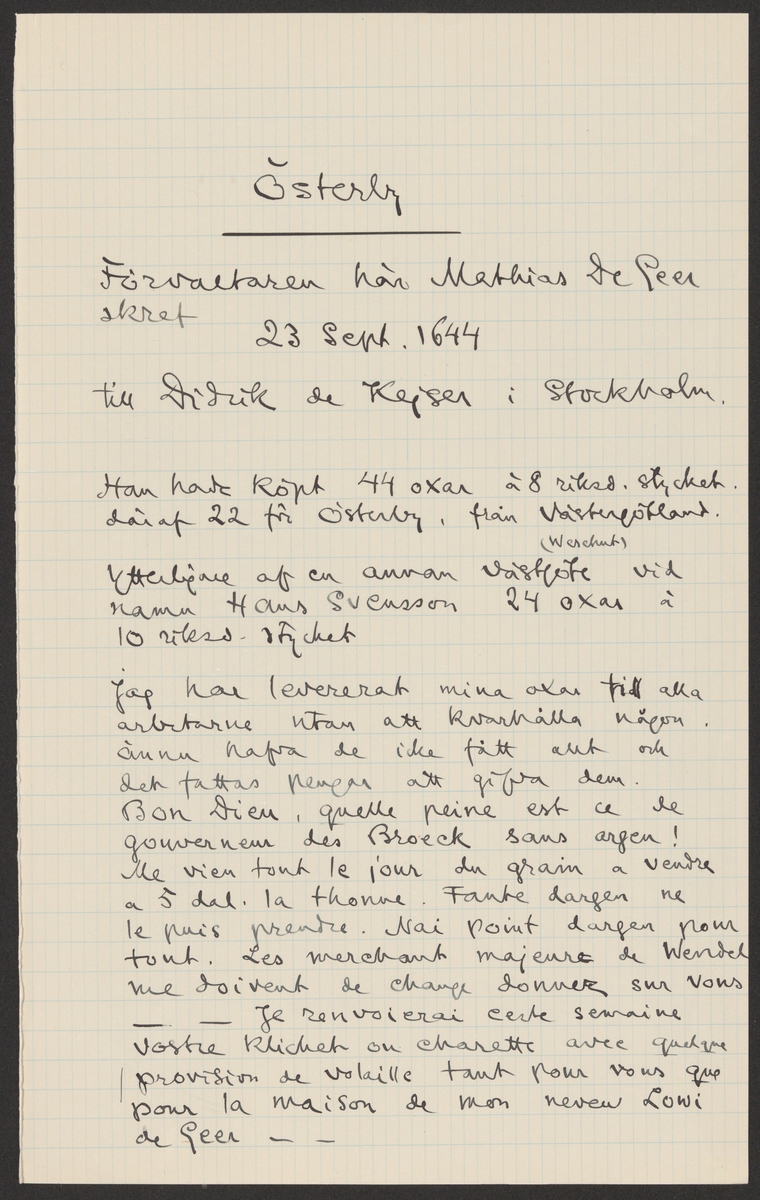 Österby
Förvaltaren här Mathias De Geer
skref
23 Sept. 1644
till Didrik de Kejser i Stockholm.
Han hade köpt 44 oxar à 8 riksd. stycket.
däraf 22 för Österby, från Västergötland.
(Weschut)
Ytterligare af en annan Västgöte vid
namn Hans Svensson 24 oxar à
10 riksd. stycket
Jag har levererat mina oxar till alla
arbetarne utan att kvarhålla någon.
ännu hafva de icke fått allt och
det fattas pengar att gifva dem.
Bon Dieu, quelle peine est ce de
gouverneur des Broeck sans argen!
Me vien tout le jour du grain a vendre
a 5 dal. la thonne. Faute dargen ne
le puis prendre. Nai point dargen pour
tout. Les merchant majeurs de Wendel
me doivent de change donnez sur vous
— — Je renvoierai ceste semaine
vostre klichet ou charette avec quelque
provision de volaille tant pour vous que
pour la maison de mon neveu Lowi
de Geer — —